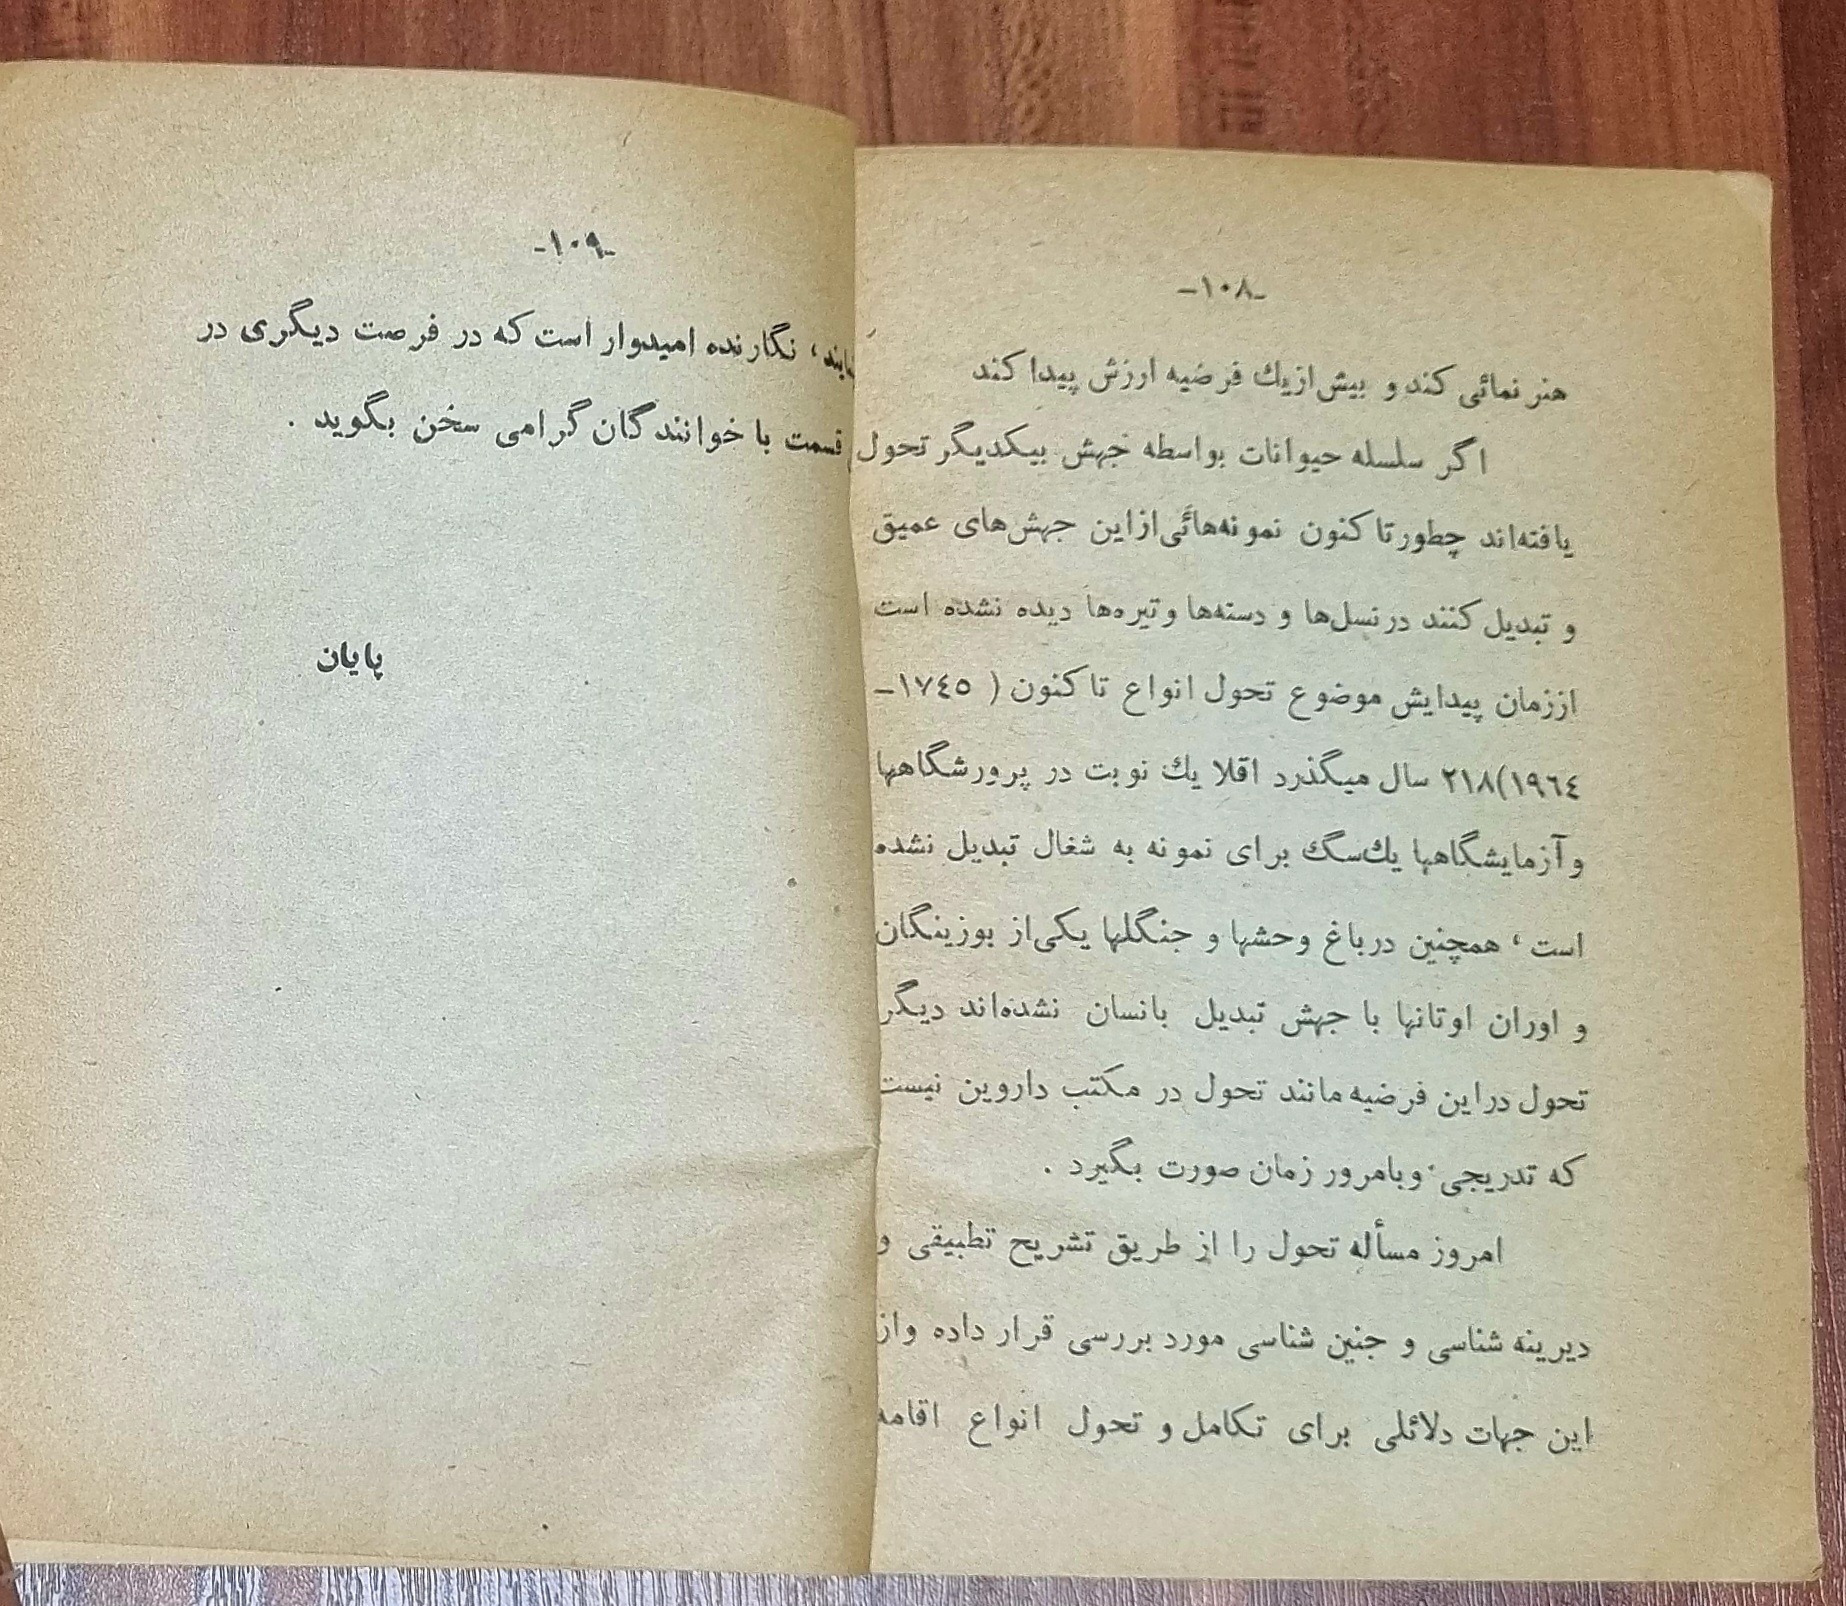 -۱۰۸-
هنر نمائی کند و بیش از یك فرضیه ارزش پیدا کند
اگر سلسله حیوانات بواسطه جهش بیکدیگر تحول
یافته‌اند چطور تا کنون نمونه‌هائی از این جهش‌های عمیق
و تبدیل کنند در نسل‌ها و دسته‌ها و تیره‌ها دیده نشده است
از زمان پیدایش موضوع تحول انواع تا کنون ( ۱۷٤٥-
۱۹٦٤)۲۱۸ سال میگذرد اقلا یك نوبت در پرورشگاهها
و آزمایشگاهها یك‌سگ برای نمونه به شغال تبدیل نشده
است ، همچنین در باغ وحشها و جنگلها یکی از بوزینگان
و اوران اوتانها با جهش تبدیل بانسان نشده‌اند دیگر
تحول در این فرضیه مانند تحول در مکتب داروین نیست
که تدریجی و بامرور زمان صورت بگیرد .
امروز مسأله تحول را از طریق تشریح تطبیقی و
دیرینه شناسی و جنین شناسی مورد بررسی قرار داده و از
این جهات دلائلی برای تکامل و تحول انواع اقامه
-۱۰۹-
نمایند ، نگارنده امیدوار است که در فرصت دیگری در
قسمت با خوانندگان گرامی سخن بگوید .
پایان